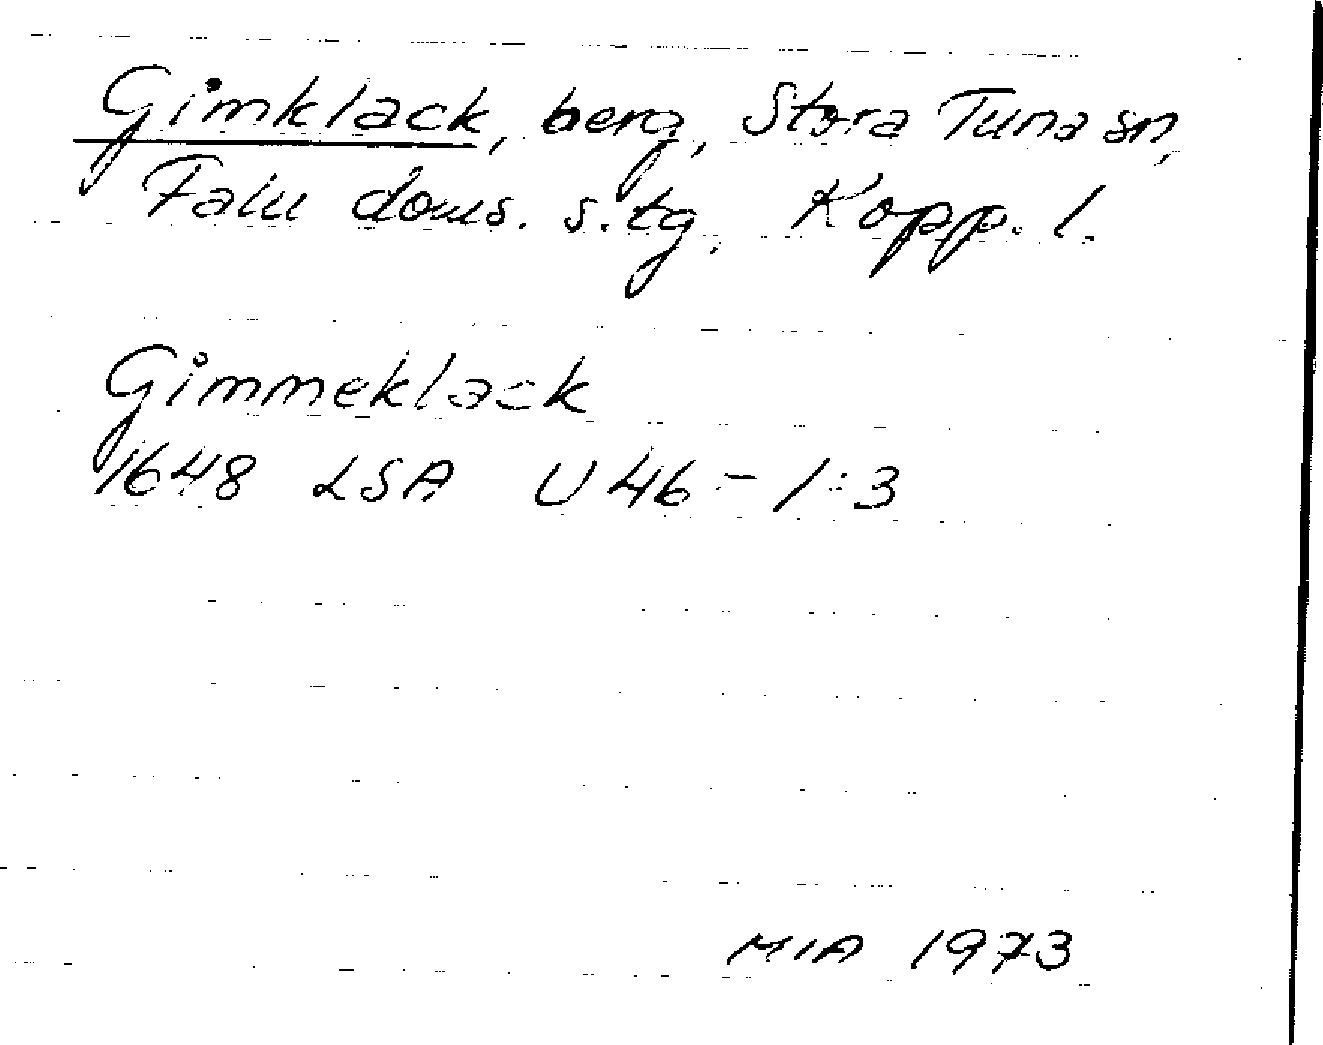 Gimklack, berg, Stora Tuna sn,
Falu doms. s. tg, Kopp. l.
Gimmeklack
1648 LSA U 46 - 1:3
MIA 1973